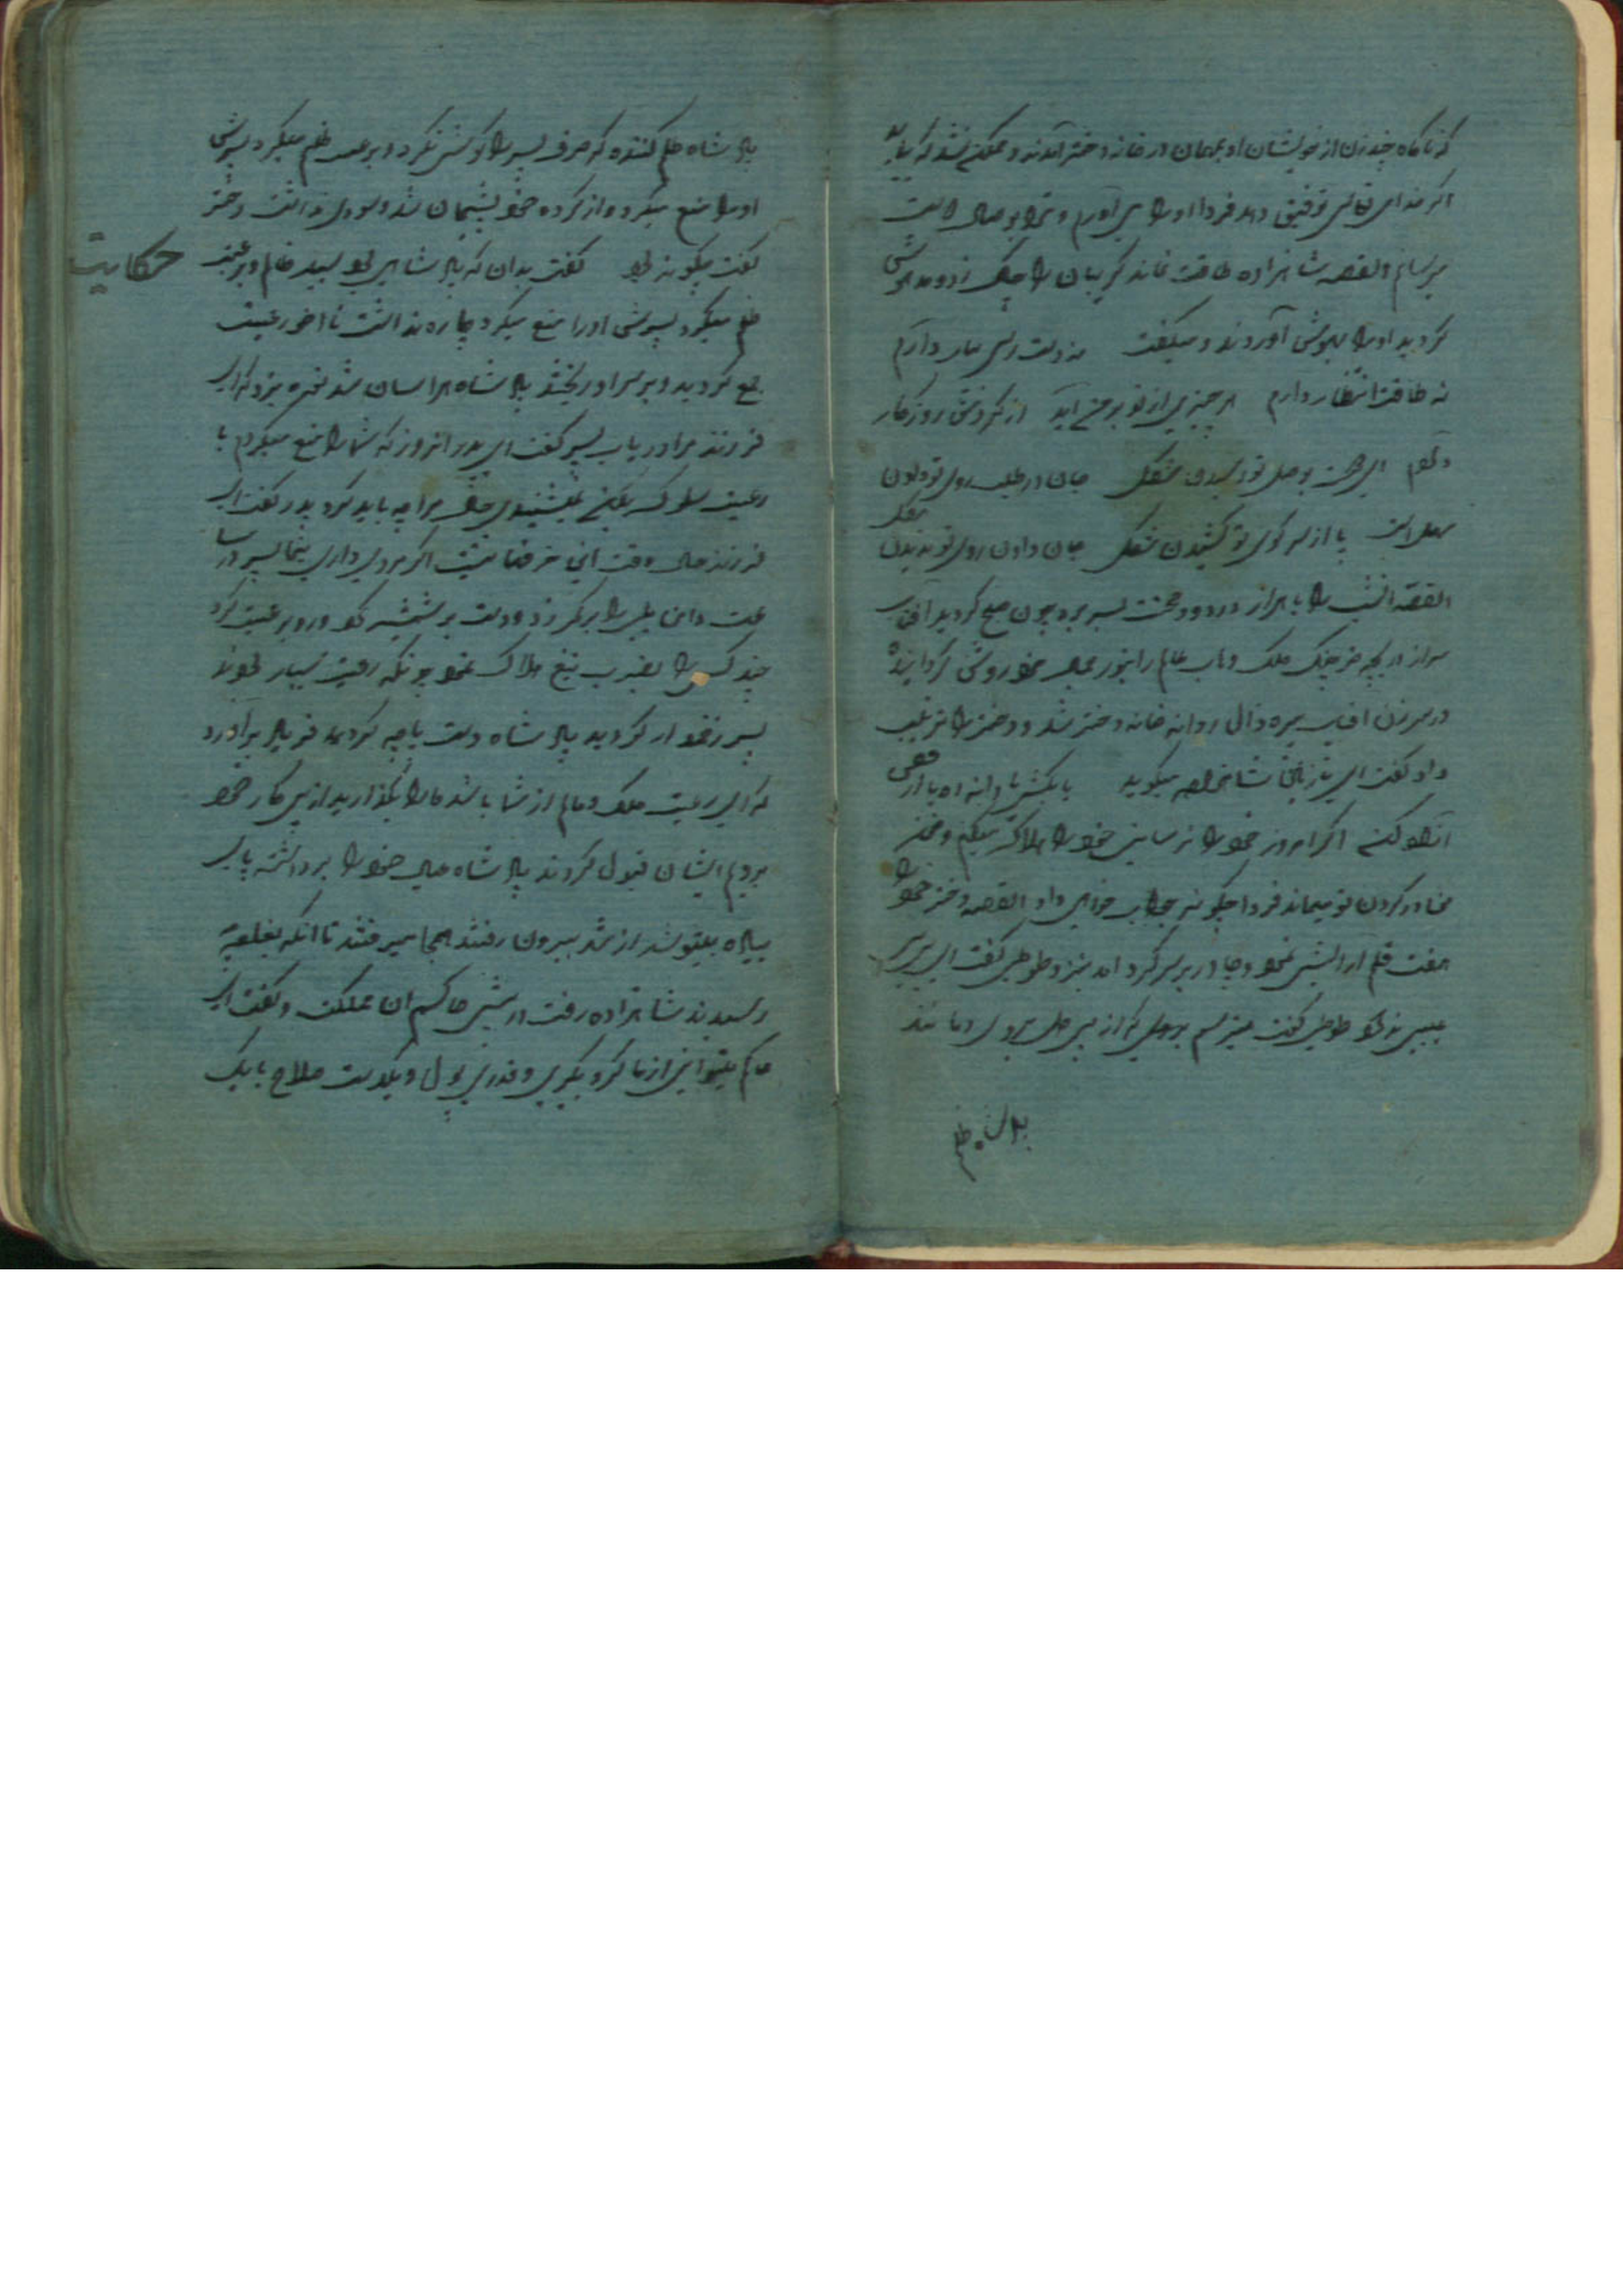 که ناگاه چند زن از خویشان او بمهمان در خانه دختر آمدند و ممکن نشد که بیاید
اگر خدای تعالی توفیق دهد فردا او را می آورم و ترا بوصال
میرسانم القصه شاهزاده طاقت نماند گریبان را چاک زد و مدهوش
گردید او را بهوش آوردند و میگفت نه دست رسی بیار دارم
نه طاقت انتظار دارم هر چیزی از تو بر من آید از گردش روزگار
دارم ای هست بوصل تو رسیدن مشکل جان در طلب روی تو دادن
سهل است پا از سر کوی تو کشیدن مشکل جان دادن روی تو ندیدن مشکل
القصه انشب را با هزار درد و محنت بسر برد چون صبح گردید افتاب
سر از دریچه فلک عالم را بنور جمال خود روشن گردانید
در سر زدن افتاب پیره زال روانه خانه دختر شد و دختر را ترتیب
داد گفت ای نازنین شاعر میگوید
انکه اگر امروز خود را نرسانی خود را هلاک میکنم و
کردن تو میماند فردا چگونه جواب خواهی داد القصه دختر خود را
هفت قلم آرایش نمود و چادر بر سر کرد امد نزد طوطی گفت ای
طوطی گفت میترسم بروی و مانند
پادشاه ظلم
پادشاه ظلم کننده که حرف پسر را گوش نکرد و بر رعیت ظلم میکرد پسرش
او را منع میکرد و از کرده خود پشیمان شد و سودی نداشت دختر
گفت چگونه بود گفت بدان که پادشاهی بود بسیار ظالم و بر رعیت
حکایت
ظلم میکرد پسرش او را منع میکرد چاره نداشت تا اخر رعیت
جمع گردیدند و بر سر او ریختند پادشاه هراسان شد نعره بزد که ای
فرزند مرا دریاب پسر گفت ای پدر انروز که شما را منع میکردم با
رعیت سلوک بکن نمیشنیدی حال مرا چه باید کرد پدر گفت ای
فرزند حال وقت این حرفها نیست اگر مردی داری بنما پسر در
دامن یلی را بر کمر زد و دست بر شمشیر نمود و رو بر رعیت کرد
چند کس را بضرب تیغ هلاک نمود چونکه رعیت بسیار بودند
پسر زخم دار گردید پادشاه دست پاچه گردید فریاد برآورد
که ای رعیت ملک و مال از شما باشد ما را بگذارید از پی کار خود
برویم ایشان قبول کردند پادشاه عیال خود را برداشته پای
پیاده از شهر بیرون رفتند همه جا میرفتند تا انکه بقلعه
رسیدند شاهزاده رفت در پیش حاکم ان مملکت و گفت ای
حاکم میتوانی از ما گرو بگیری و قدری پول و یکدست سلاح با یک